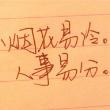 烟花易冷。
人事易分。